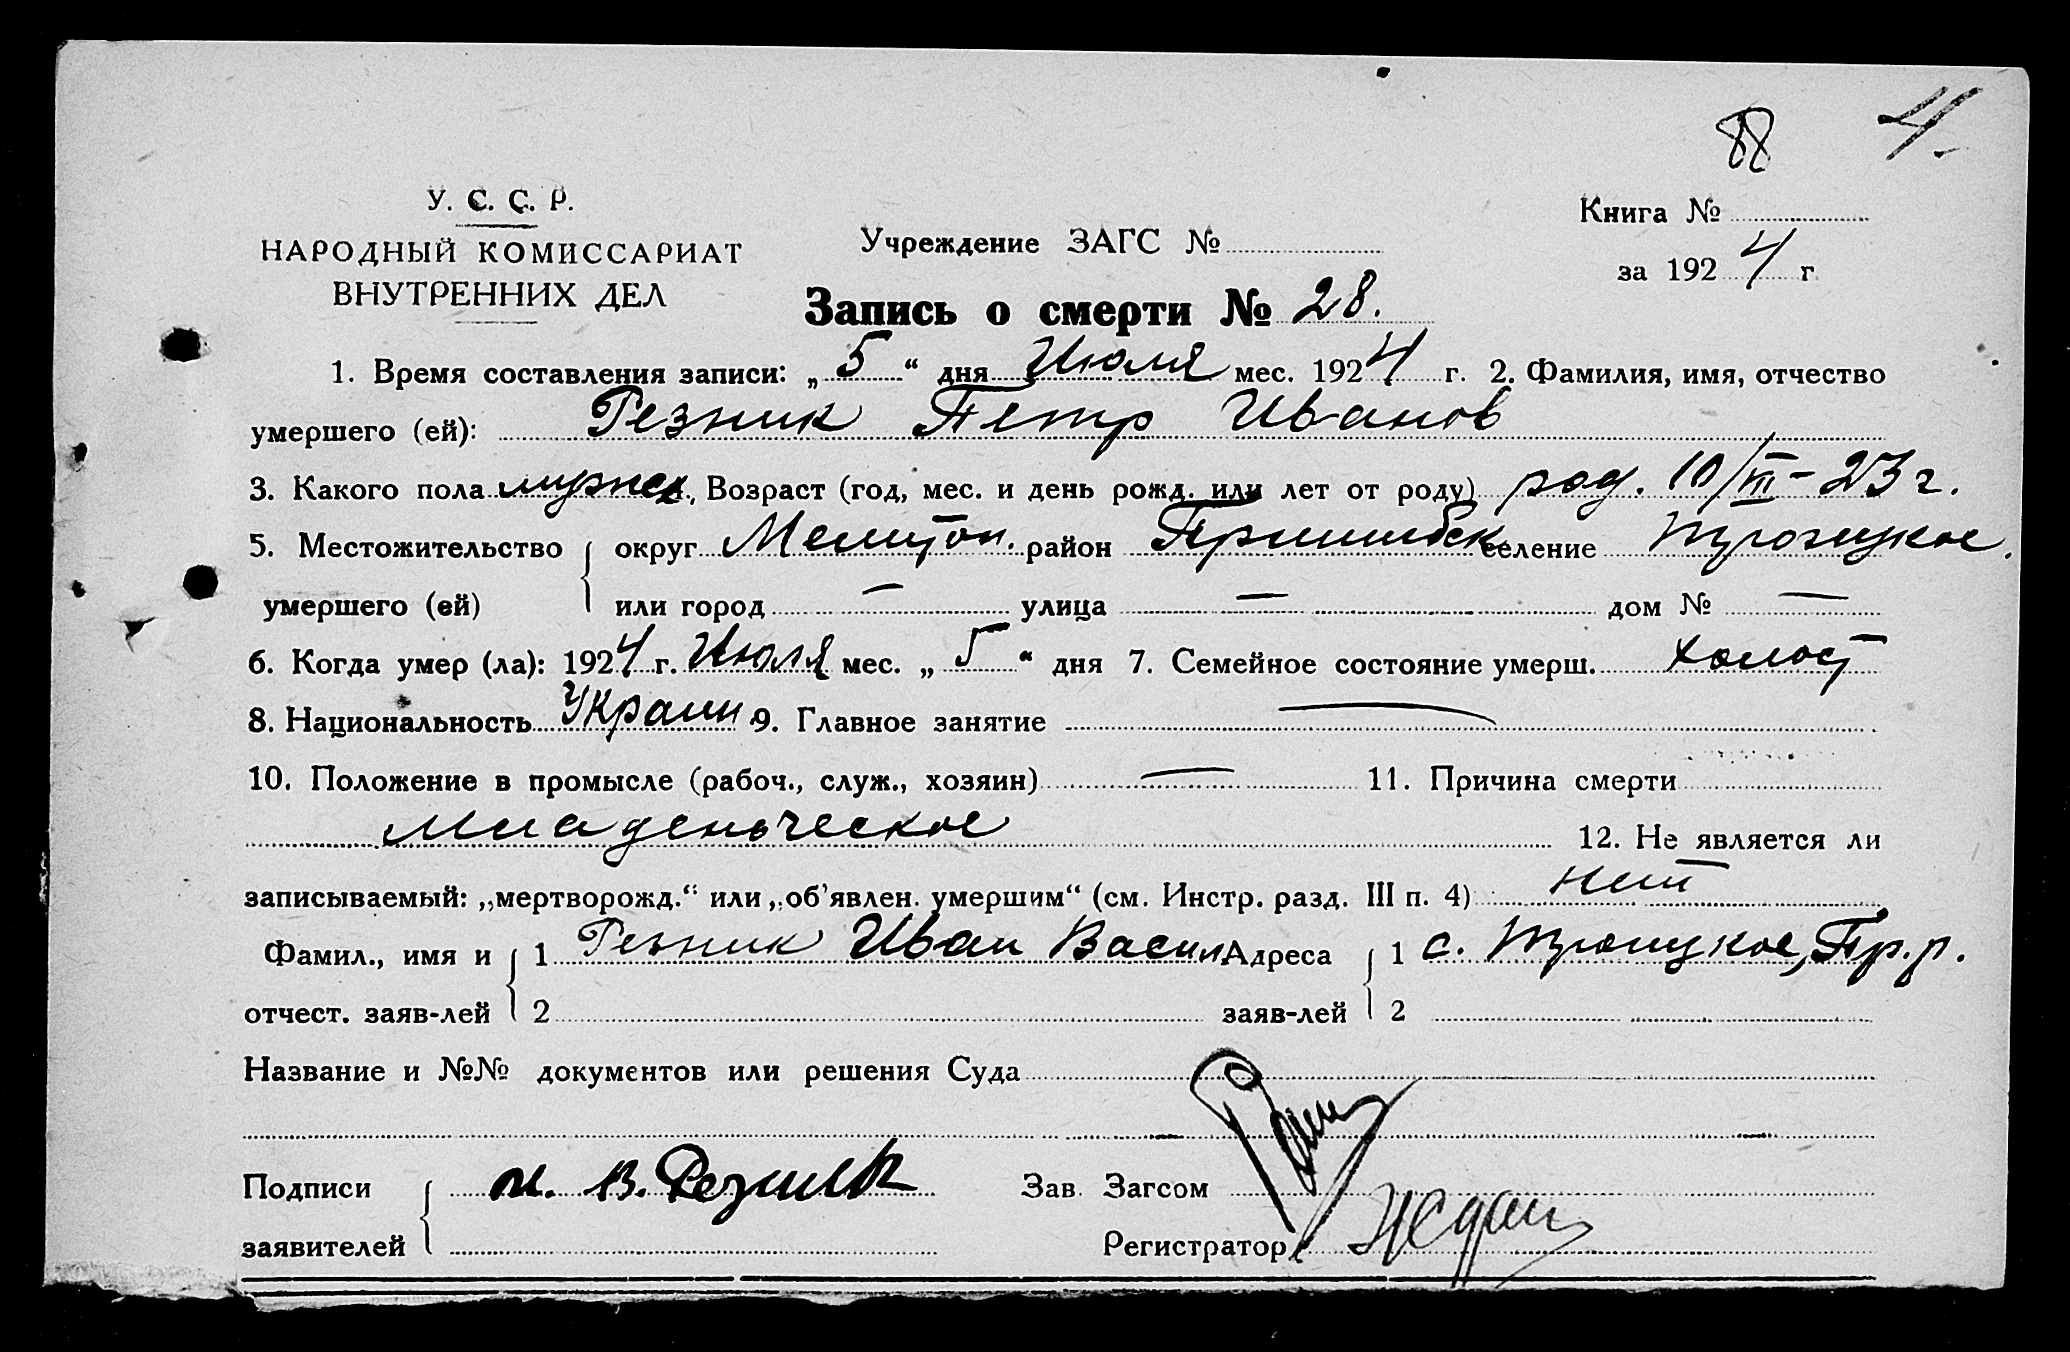 88 4.
У. С. С. Р.
НАРОДНЫЙ КОМИССАРИАТ
ВНУТРЕННИХ ДЕЛ
Учреждение ЗАГС №
Книга №
за 1924 г.
Запись о смерти № 28.
1. Время составления записи: „5“ дня Июля мес. 1924 г. 2. Фамилия, имя, отчество
умершего (ей): Резник Петр Иванов
3. Какого пола мужск., Возраст (год, мес. и день рожд. или лет от роду) род. 10/VII-23 г.
5. Местожительство округ Мелитоп. район Пришибск селение Троицкое.
умершего (ей) или город — улица — дом № —
6. Когда умер (ла): 1924 г. Июля мес. „5“ дня 7. Семейное состояние умерш. холост
8. Национальность Украин. 9. Главное занятие —
10. Положение в промысле (рабоч., служ., хозяин) — 11. Причина смерти
Младенческое 12. Не является ли
записываемый: „мертворожд.“ или „об'явлен. умершим“ (см. Инстр. разд. III п. 4) нет
Фамил., имя и 1 Резник Иван Васил Адреса 1 с. Троицкое, Пр. р.
отчест. заяв-лей 2 заяв-лей 2
Название и №№ документов или решения Суда
Подписи И. В. Резник Зав. Загсом
заявителей Регистратор